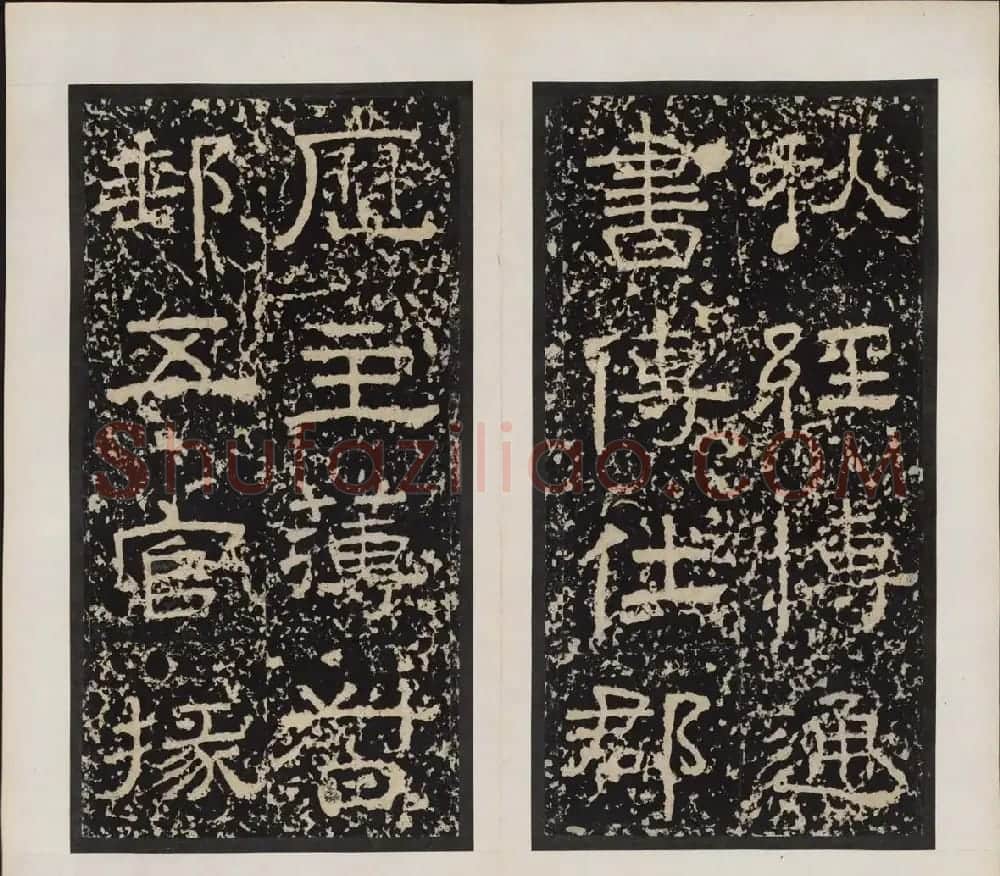 秋經博通
書傳仕郡
歷主簿督
郵五官掾
Shufaziliao.COM